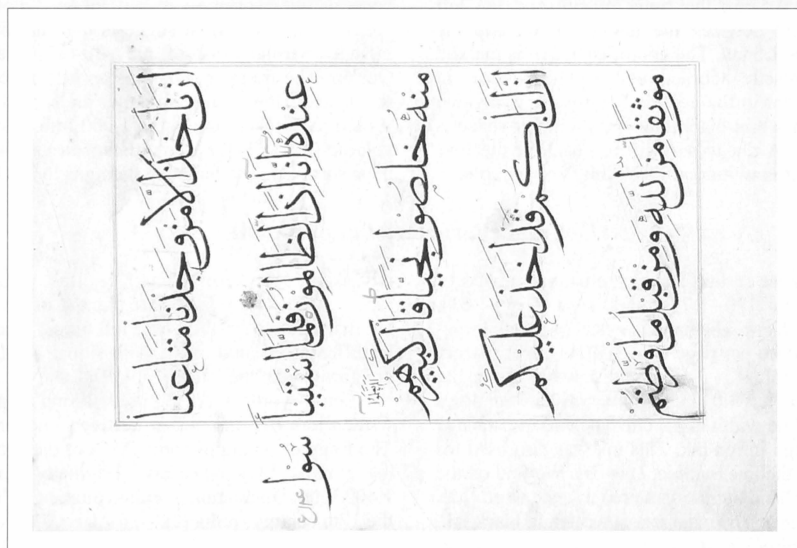 ان ناخذ الا من وجدنا متاعنا
عنده انا اذا لظلمون فلما استيا
سوا
منه خلصوا نجيا قال كبيرهم
ان اباكم قد اخذ عليكم
موثقا من الله ومن قبل ما فرطتم